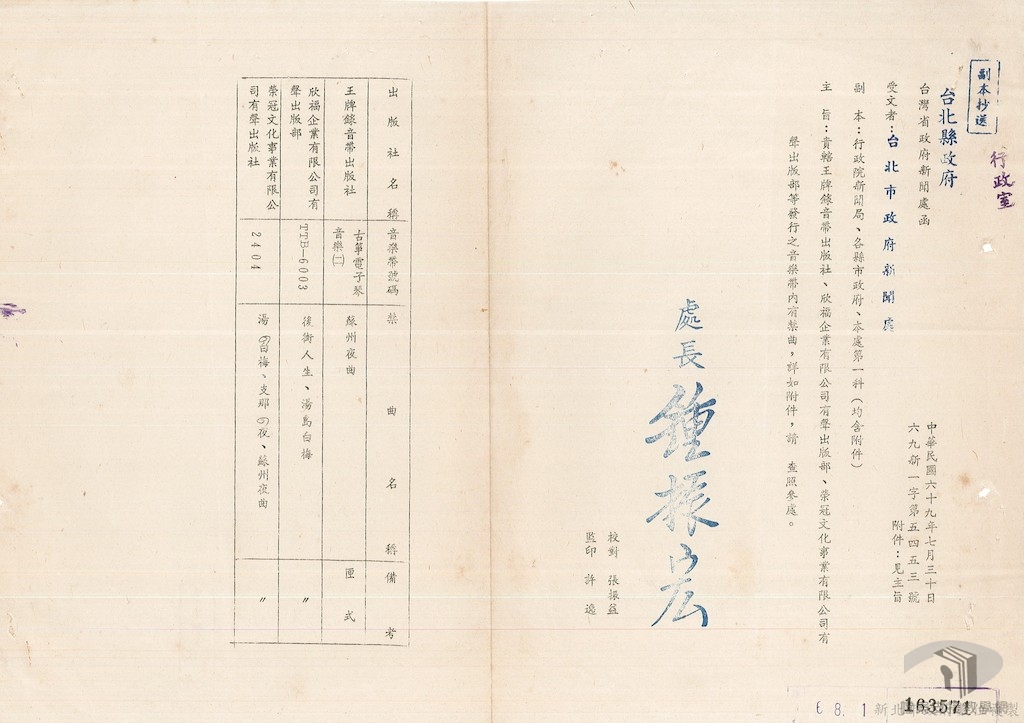 副本抄送
行政室
台北縣政府
台灣省政府新聞處函
中華民國六十九年七月三十日
六九新一字第五四五三號
附件：見主旨
受文者：台北市政府新聞處
副本：行政院新聞局、各縣市政府、本處第一科（均含附件）
主旨：貴轄王牌錄音帶出版社、欣福企業有限公司有聲出版部、榮冠文化事業有限公司有
聲出版部等發行之音樂帶內有禁曲，詳如附件，請　查照參處。
處長 鍾振宏
校對　張振益
監印　許逸
出版社名稱 音樂帶號碼 禁曲名稱 備考
王牌錄音帶出版社 古箏電子琴音樂㈡ 蘇州夜曲 匣式
欣福企業有限公司有聲出版部 TTB—6003 後街人生、湯島白梅 〃
榮冠文化事業有限公司有聲出版社 2404 湯の白梅、支那の夜、蘇州夜曲 〃
6 8. 1
163571